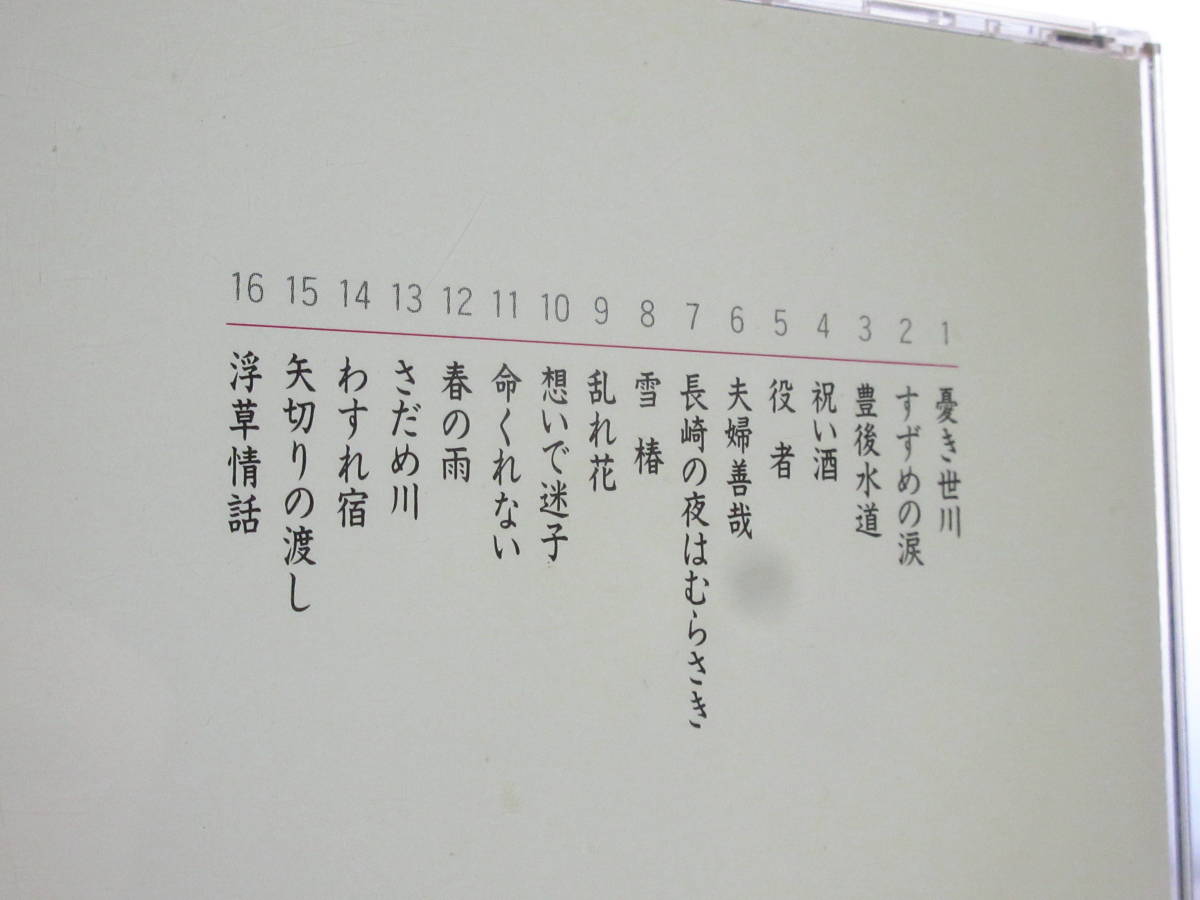 1 憂き世川
2 すずめの涙
3 豊後水道
4 祝い酒
5 役者
6 夫婦善哉
7 長崎の夜はむらさき
8 雪椿
9 乱れ花
10 想いで迷子
11 命くれない
12 春の雨
13 さだめ川
14 わすれ宿
15 矢切りの渡し
16 浮草情話